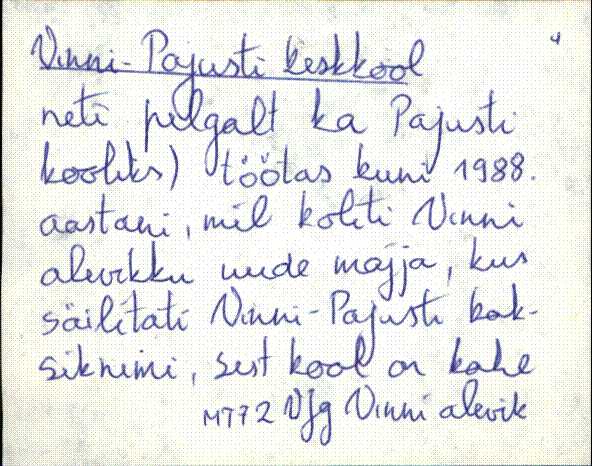 Vinni-Pajusti keskkool
neti pelgalt ka Pajusti
kooliks) töötas kuni 1988.
aastani, mil koliti Vinni
alevikku uude majja, kus
säilitati Vinni-Pajusti kak-
siknimi, sest kool on kahe
MT72 VJg Vinni alevik